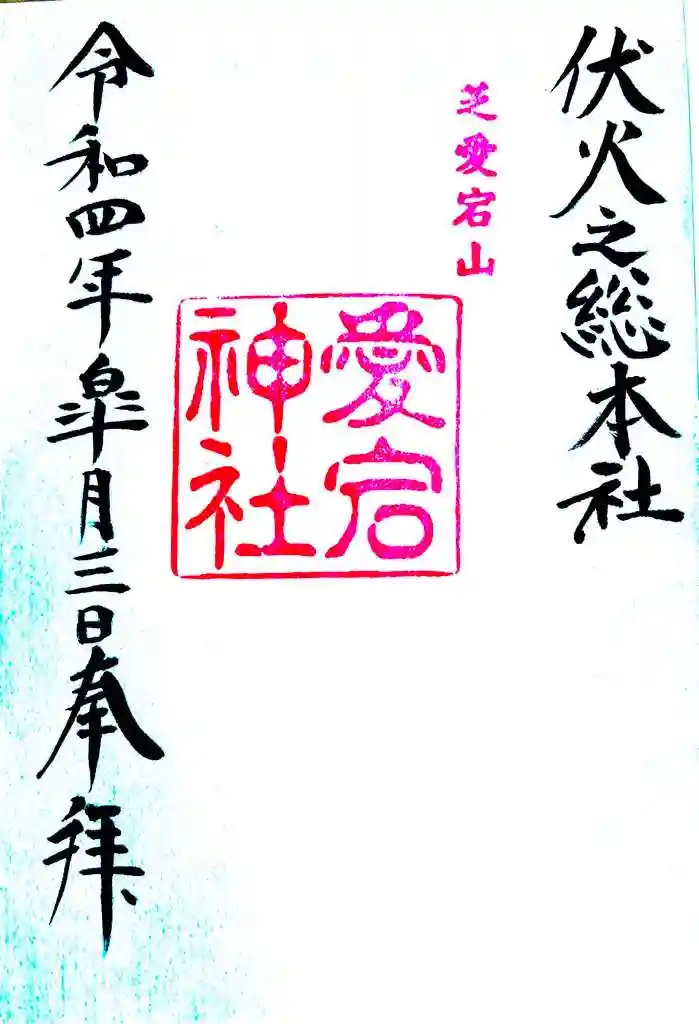 伏火之総本社
芝愛宕山
愛宕
神社
令和四年皐月三日奉拝